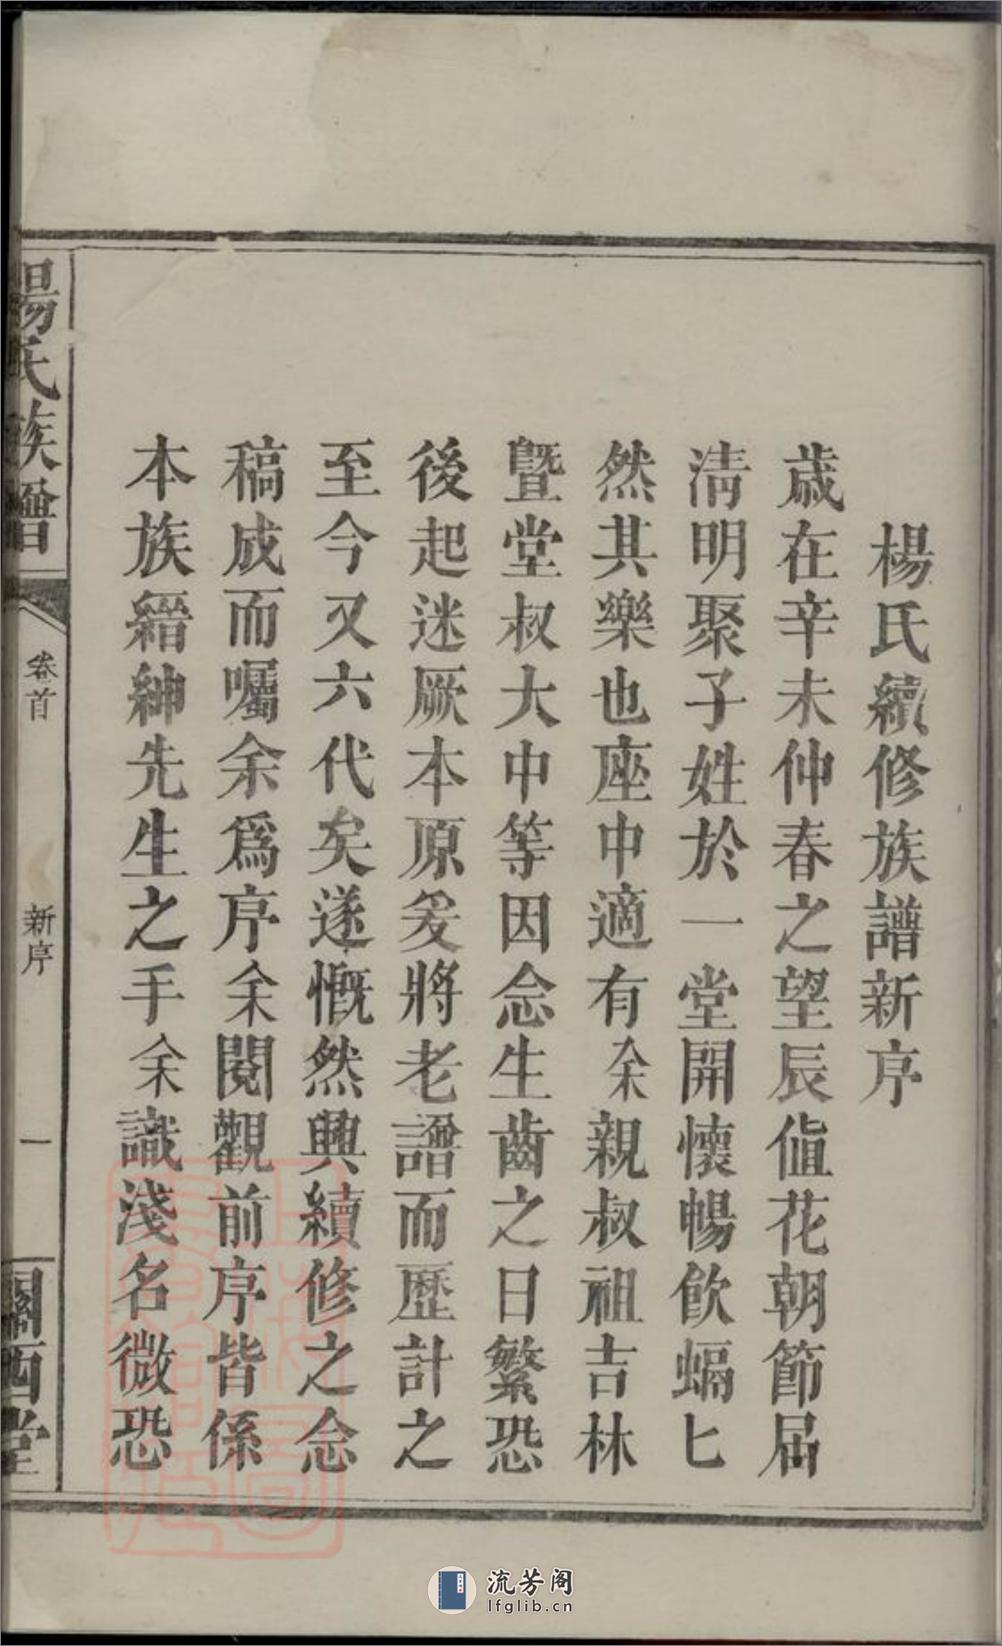 楊氏續修族譜新序
歲在辛未仲春之望辰值花朝節届
淸明聚子姓於一堂開懷暢飮蝹匕
然其樂也座中適有余親叔祖吉林
曁堂叔大中等因念生齒之日繁恐
後起迷厥本原爰將老譜而歷計之
至今又六代矣遂慨然興續修之念
稿成而囑余爲序余閱觀前序皆係
本族縉紳先生之手余識淺名微恐
楊氏族譜
卷首
新序
一
關西堂
流芳阁
lfglib.cn